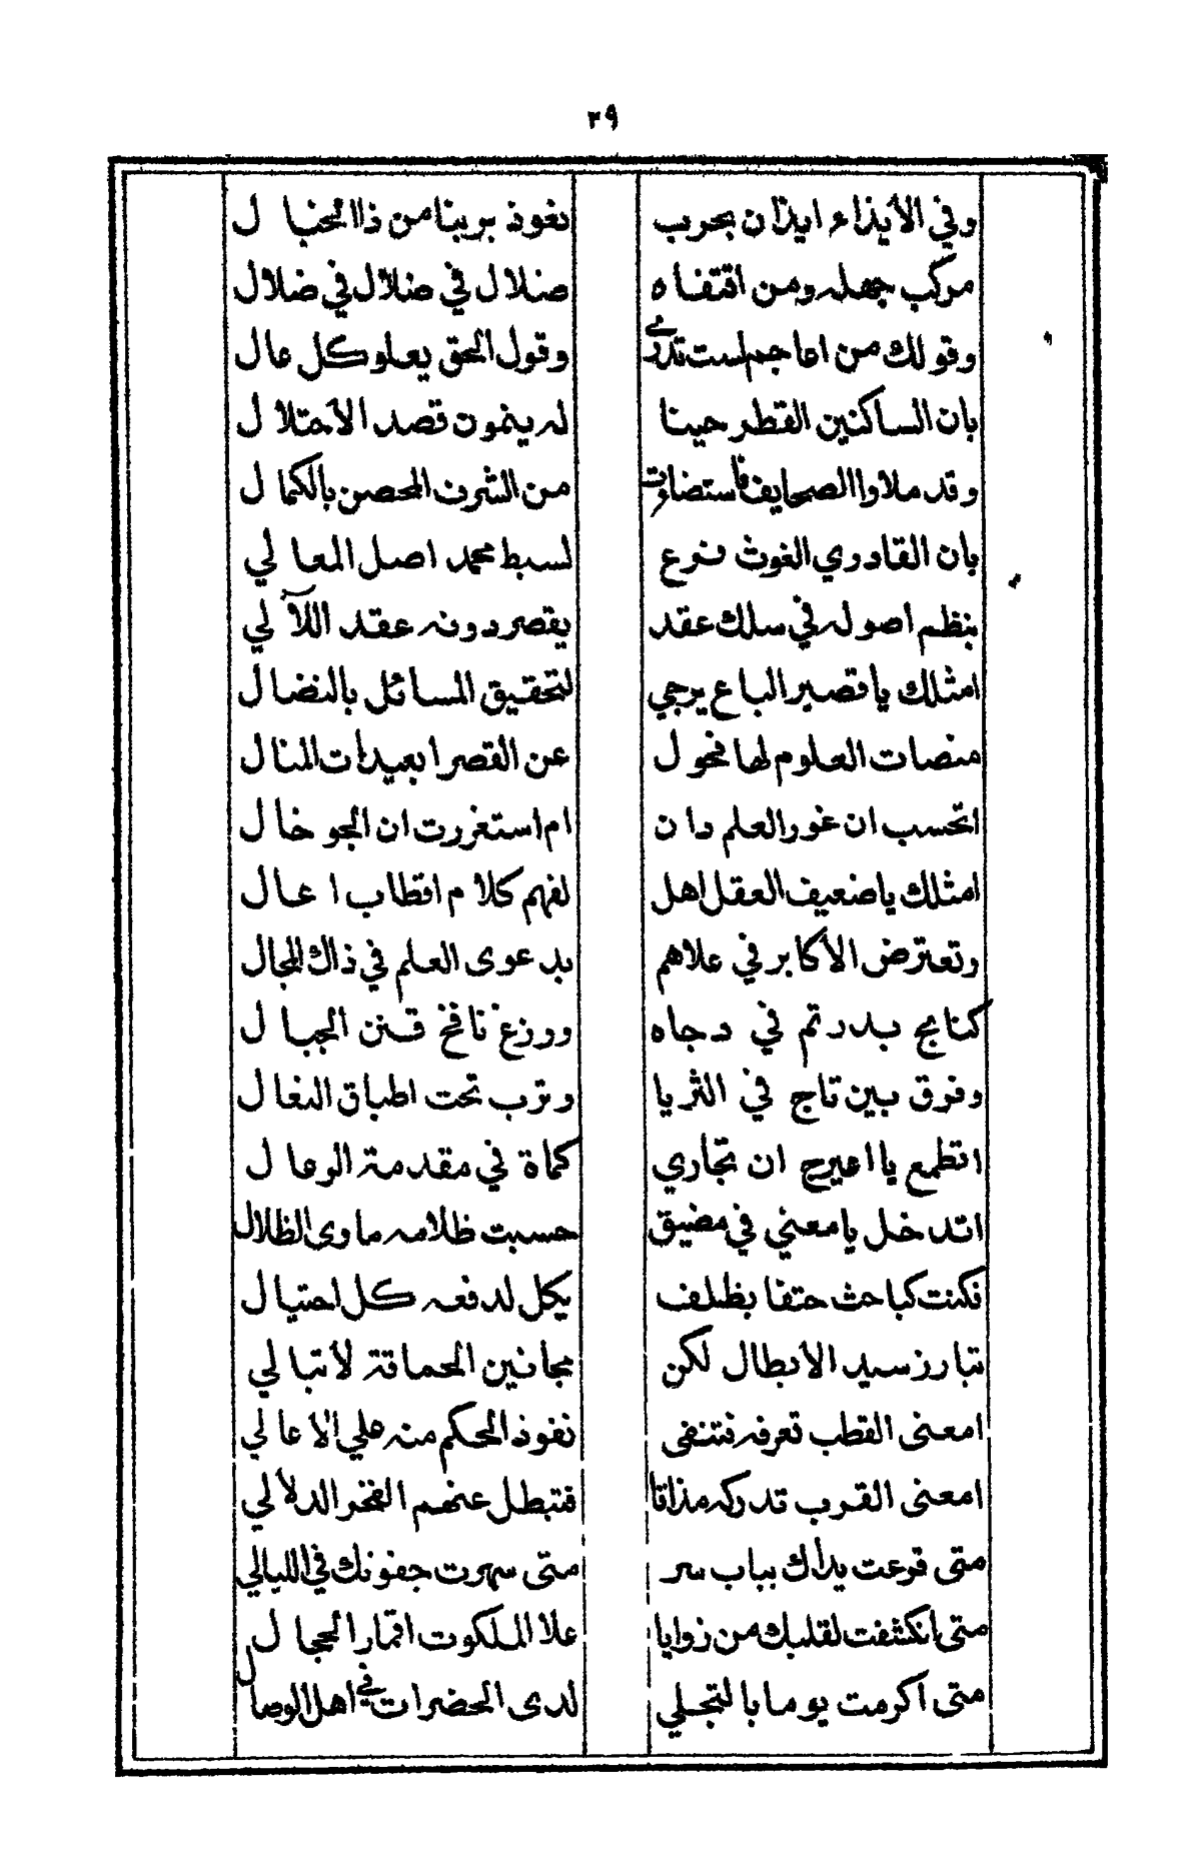 ٢٩
وفي الأيذاء ايذان بحرب نعوذ بربنا من ذا الخبال
مركب جهله ومن اقتفاه ضلال في ضلال في ضلال
وقولك من اعاجم لست تدري وقول الحق يعلو كل عال
بان الساكنين القطر حينا له ينمون قصد الأحتلال
وقد ملاوا الصحايف فاستضاءت من الشرف المحصن بالكمال
بان القادري الغوث فرع لسبط محمد اصل المعالي
بنظم اصوله في سلك عقد يقصر دونه عقد اللآلي
امثلك يا قصير الباع يرجي لتحقيق المسائل بالنضال
منصات العلوم لها فحول عن القصر ابعيدات المنال
اتحسب ان غور العلم دان ام استغررت ان الجو خال
امثلك يا ضعيف العقل اهل لفهم كلام اقطاب اعال
وتعترض الأكابر في علاهم بدعوى العلم في ذاك المجال
كنابح بدر تم في دجاه ووزغ نافخ قنن الجبال
وفرق بين تاج في الثريا وترب تحت اطباق النعال
اتطمع يا اعيرج ان تجاري كماة في مقدمة الرعال
اتدخل يا معني في مضيق حسبت ظلامه ماوى الظلال
فكنت كباحث حتفا بظلف يكل لدفعه كل احتيال
تبارز سيد الأبطال لكن مجانين الحماقة لأتبالي
امعنى القطب تعرفه فتنفى نفوذ الحكم منه علي الأعالي
امعنى القرب تدركه مذاقا فتبطل عنهم الفخر الدلالي
متى قرعت يداك بباب سر متى سهرت جفونك في الليالي
متى انكشفت لقلبك من زوايا علا الملكوت اقمار الحجال
متى اكرمت يوما بالتجلي لدى الحضرات في اهل الوصال